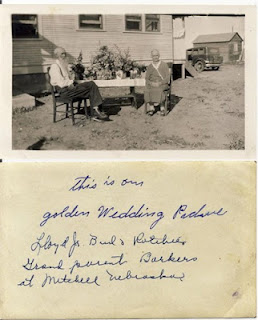 this is our
golden Wedding Picture
Lloyd Jr. Bud &
Grand parent Barkers
at Mitchell Nebraska